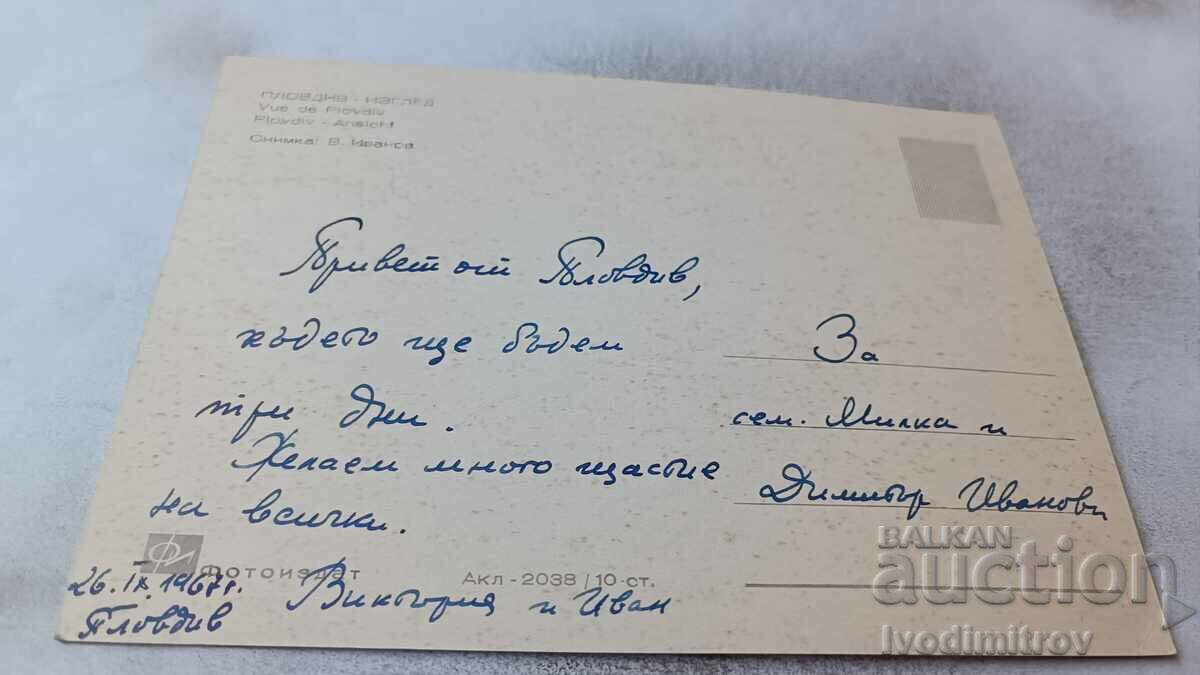 ПЛОВДИВ - ИЗГЛЕД
Vue de Plovdiv
Plovdiv - Ansicht
Снимка: В. Иванов
Привет от Пловдив,
където ще бъдем
три дни.
Желаем много щастие
на всички.
Виктория и Иван
26.IX.1967г.
Пловдив
За
сем. Милка и
Димитър Иванови
Фотоиздат
Акл - 2038 / 10 ст.
BALKAN
auction
Ivodimitrov